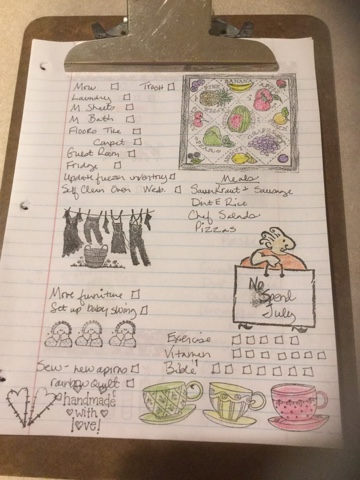 Mow Trash
Laundry
M Sheets
M Bath
Floors Tile
Carpet
Guest Room
Fridge
Update freezer inventory
Self Clean Oven Wed.
BANANA
Meals
Sauerkraut & Sausage
Dirt E Rice
Chef Salads
Pizzas
No
Spend
July
Move furniture
Set up Baby Swing
Exercise
Vitamin
Bible
Sew - new apron
rainbow quilt
handmade
with
love!